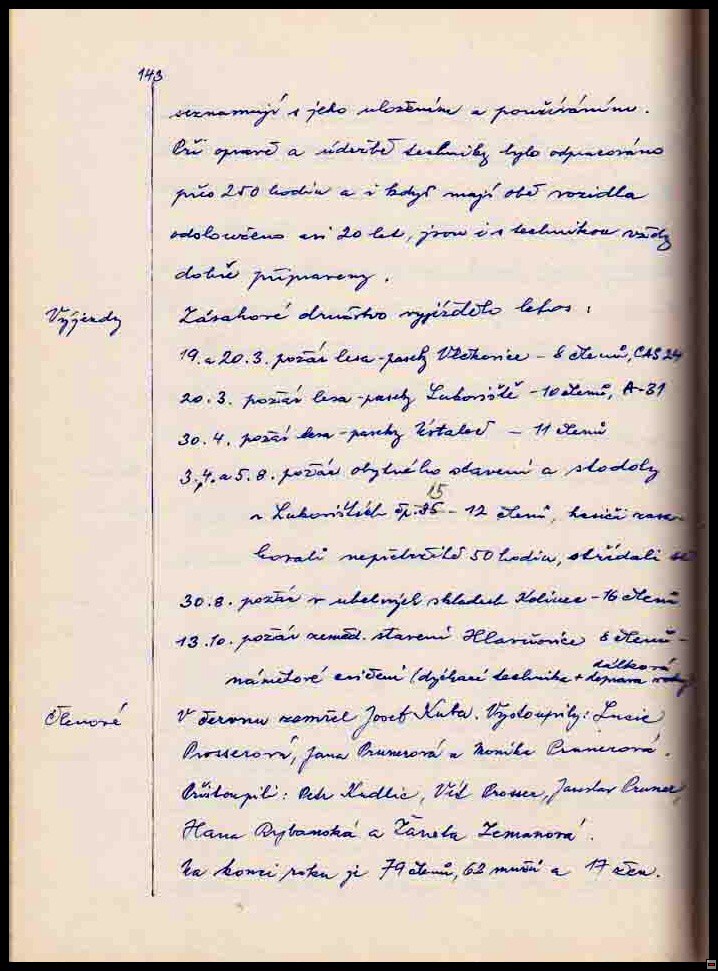 143
seznamují s jeho uložením a používáním.
Při opravě a údržbě techniky bylo odpracováno
přes 250 hodin a i když mají obě vozidla
odslouženo asi 20 let, jsou i s technikou vždy
dobře připraveny.
Výjezdy
Zásahové družstvo vyjíždělo letos:
19. a 20.3. požár lesa-paseky Vlčkovice - 8 členů, CAS 24
20.3. požár lesa-paseky Luboviště - 10 členů, A-31
30.4. požár lesa-paseky Úštaleč - 11 členů
3., 4. a 5.8. požár obytného stavení a stodoly
15
v Lubovištích čp. 35 - 12 členů, hasiči zasa-
hovali nepřetržitě 50 hodin, střídali se
30.8. požár v uhelných skladech Kolinec - 16 členů
13.10. požár zeměd. stavení Hlavňovice 8 členů -
dálková
námětové cvičení (dýchací technika + doprava vody)
Členové
V červnu zemřel Josef Kuba. Vystoupily: Lucie
Prosserová, Jana Prunerová a Monika Prunerová.
Přistoupili: Petr Kudlic, Vít Prosser, Jaroslav Pruner,
Hana Rybanská a Žaneta Zemanová.
Na konci roku je 79 členů, 62 mužů a 17 žen.